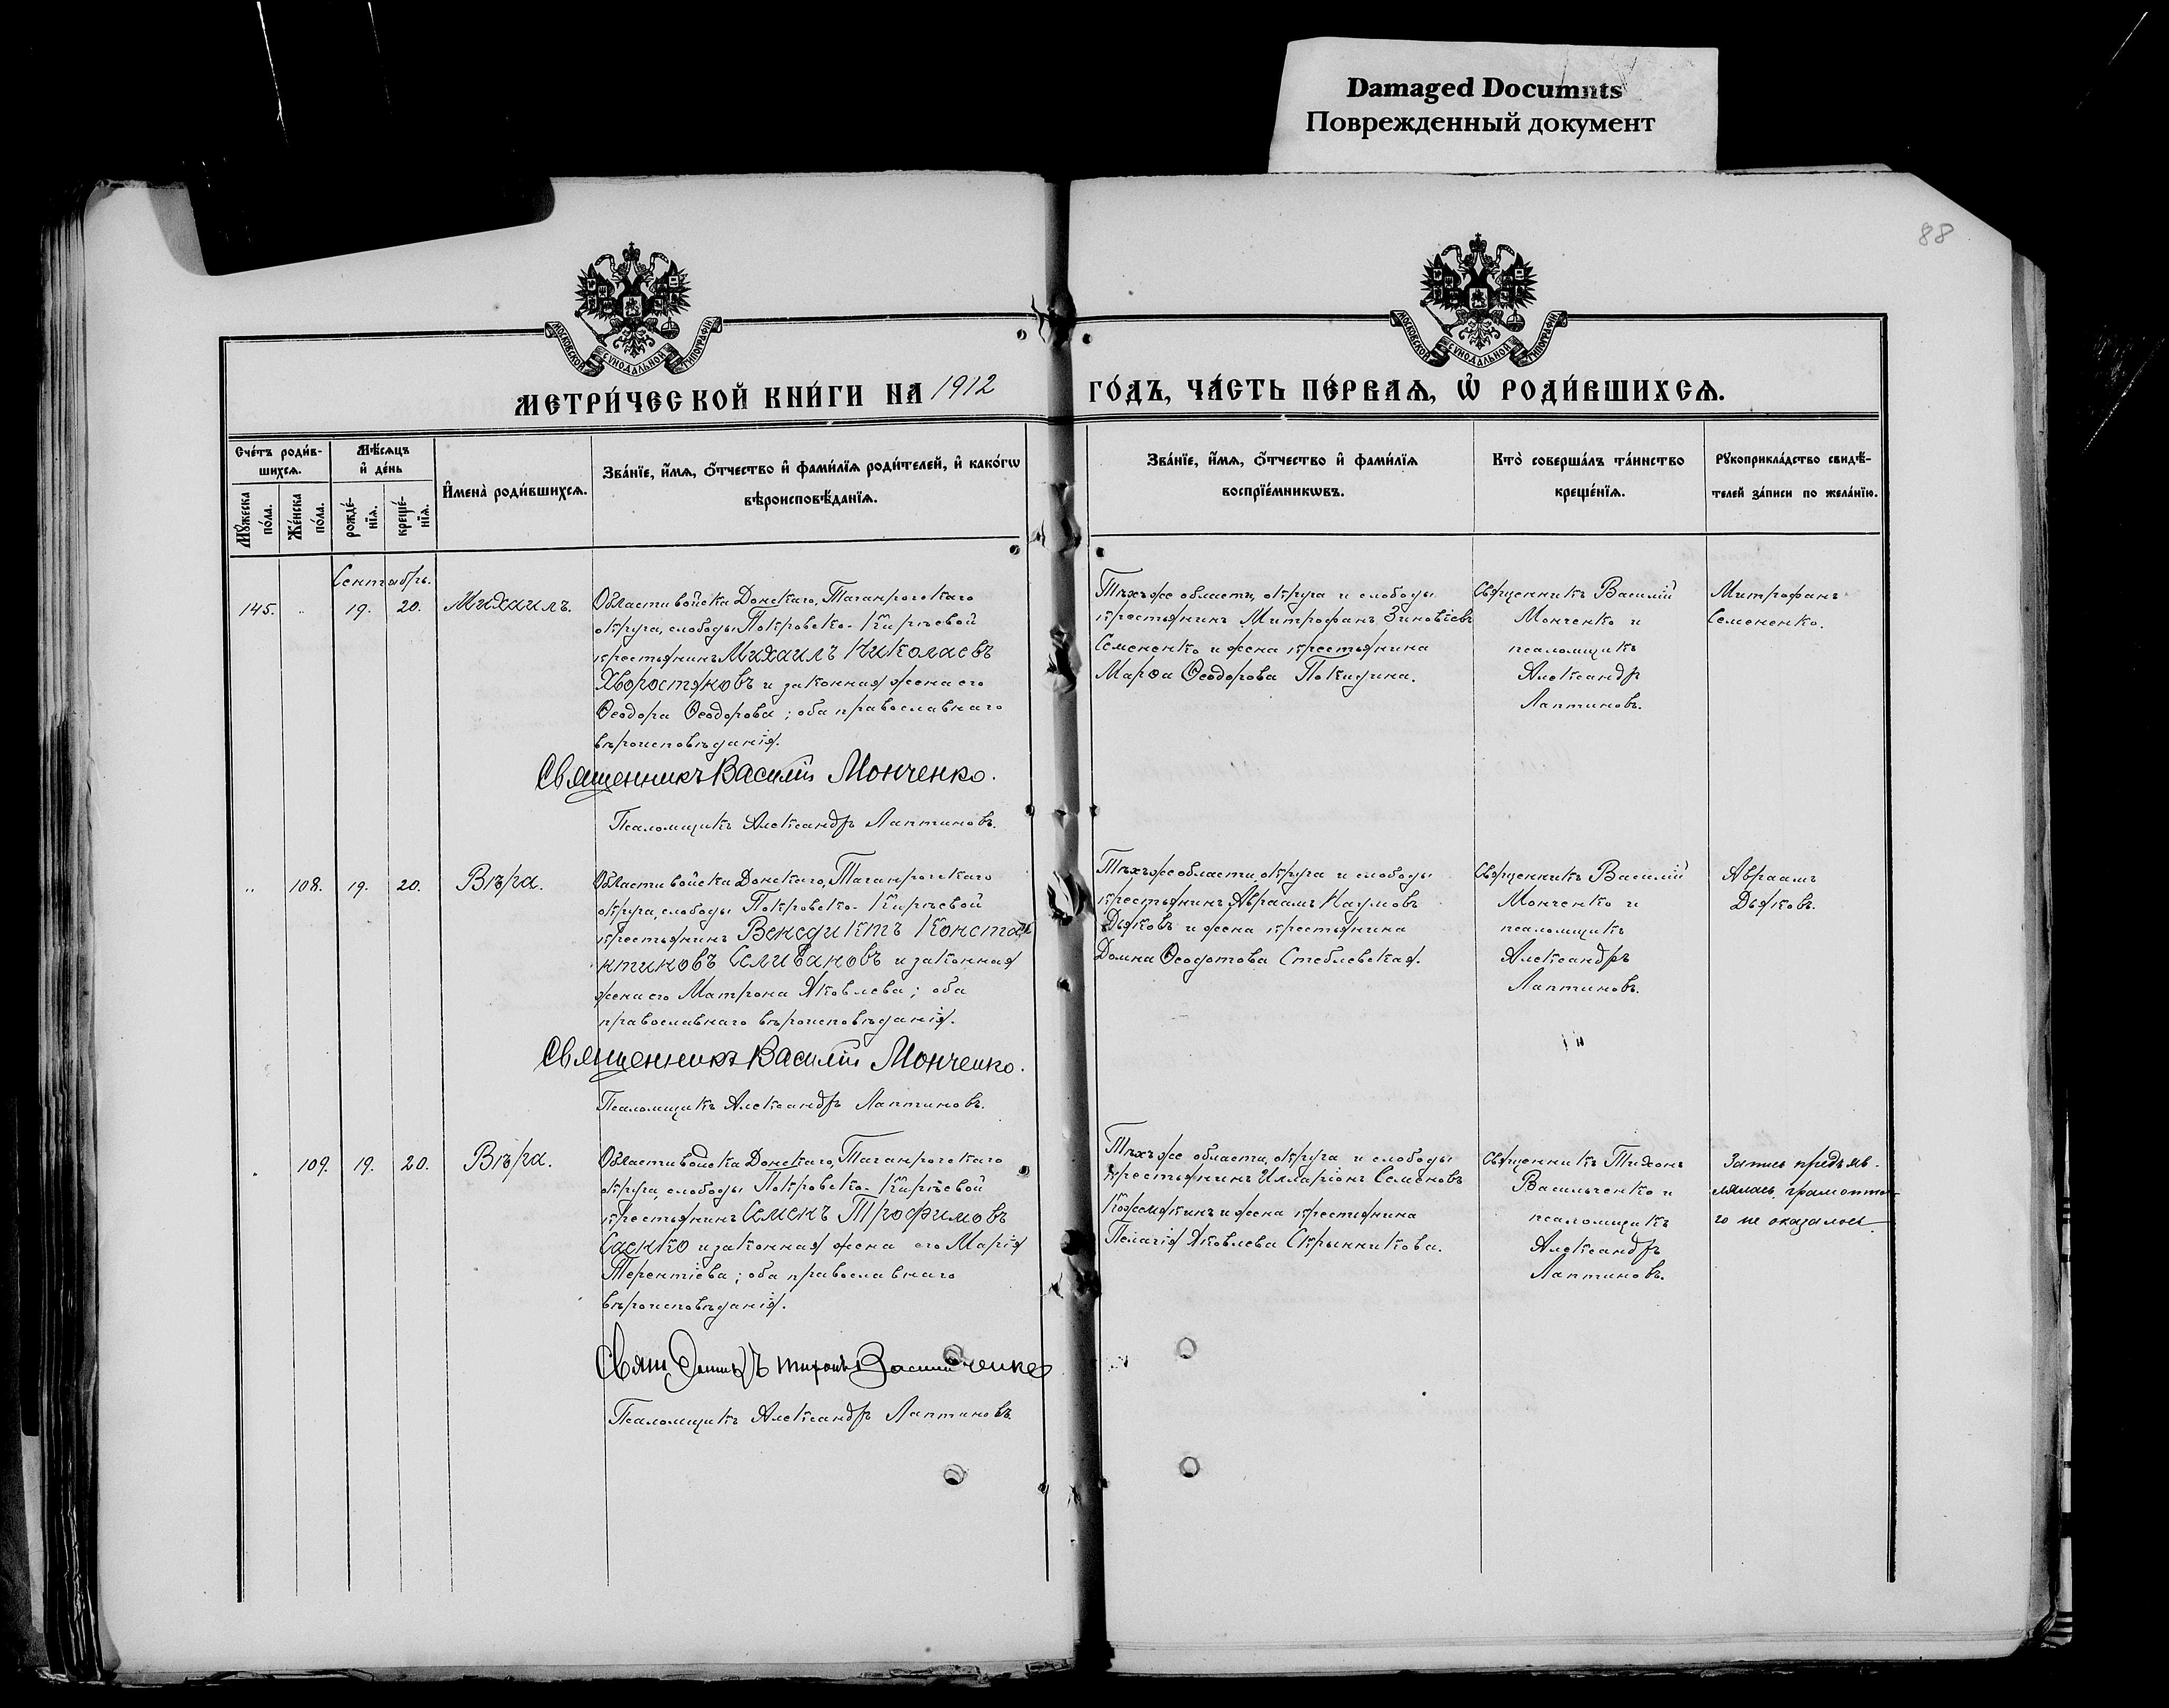 Damaged Documnts
Поврежденный документ
88
МОСКОВСКОЙ СѴНОДАЛЬНОЙ ТИПОГРАФІИ
МОСКОВСКОЙ СѴНОДАЛЬНОЙ ТИПОГРАФІИ
МЕТРИ́ЧЕСКОЙ КНИ́ГИ НА 1912
ГО́ДЪ, ЧА́СТЬ ПЕ́РВАѦ, Ѡ҆ РОДИ́ВШИХСѦ.
Сче́тъ роди́в-
шихсѧ.
Мѣ́сѧцъ
и҆ де́нь
Мꙋ́жеска
по́ла.
Же́нска
по́ла.
рожде́-
нїѧ.
креще́-
нїѧ.
И҆мена̀ роди́вшихсѧ.
Зва́нїе, и҆́мѧ, ѻ҆́тчество и҆ фами́лїѧ роди́телей, и҆ како́гѡ
вѣроисповѣ́данїѧ.
Зва́нїе, и҆́мѧ, ѻ҆́тчество и҆ фами́лїѧ
воспрїе́мникѡвъ.
Кто̀ соверша́лъ та́инство
креще́нїѧ.
Рꙋкоприкла́дство свидѣ́-
телей за́писи по жела́нїю.
Сентябрь.
145. „ 19. 20. Михаилъ.
Области войска Донскаго, Таганрогскаго
округа, слободы Покровско-Кирѣевой
крестьянинъ Михаилъ Николаевъ
Хворостяновъ и законная жена его
Ѳеодора Ѳеодорова; оба православнаго
вѣроисповѣданія.
Священникъ Василій Монченко.
Псаломщикъ Александръ Лаптиновъ.
Тѣхъ же области, округа и слободы
крестьянинъ Митрофанъ Зиновіевъ
Семененко и жена крестьянина
Марѳа Ѳеодорова Покидина.
Священникъ Василій
Монченко и
псаломщикъ
Александръ
Лаптиновъ.
Митрофанъ
Семененко.
„ 108. 19. 20. Вѣра.
Области войска Донскаго, Таганрогскаго
округа, слободы Покровско-Кирѣевой
крестьянинъ Венедиктъ Конста
нтиновъ Селивановъ и законная
жена его Матрона Яковлева; оба
православнаго вѣроисповѣданія.
Священникъ Василій Монченко.
Псаломщикъ Александръ Лаптиновъ.
Тѣхъ же области, округа и слободы
крестьянинъ Авраамъ Наумовъ
Дьяковъ и жена крестьянина
Домна Ѳеодотова Стеблевская.
Священникъ Василій
Монченко и
псаломщикъ
Александръ
Лаптиновъ.
Авраамъ
Дьяковъ.
109. 19. 20. Вѣра.
Области войска Донскаго, Таганрогскаго
округа, слободы Покровско-Кирѣевой
крестьянинъ Семенъ Трофимовъ
Саенко и законная жена его Марія
Терентіева; оба православнаго
вѣроисповѣданія.
Священникъ Тихонъ Васильченко
Псаломщикъ Александръ Лаптиновъ.
Тѣхъ же области, округа и слободы
крестьянинъ Илларіонъ Семеновъ
Кожемякинъ и жена крестьянина
Пелагія Яковлева Скрынникова.
Священникъ Тихонъ
Васильченко и
псаломщикъ
Александръ
Лаптиновъ.
Запись предъяв-
лялась, грамотна-
го не оказалось